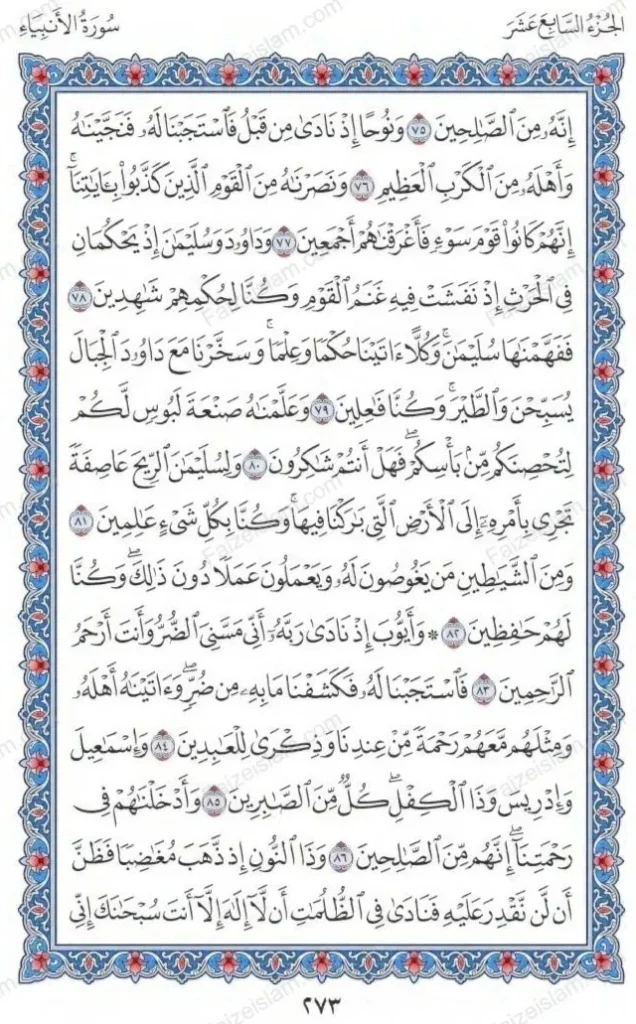 الجُزْءُ السَّابِعَ عَشَرَ
سُورَةُ الأَنبِيَاءِ
إِنَّهُ مِنَ الصَّالِحِينَ ٧٥ وَنُوحًا إِذْ نَادَىٰ مِن قَبْلُ فَاسْتَجَبْنَا لَهُ فَنَجَّيْنَاهُ
وَأَهْلَهُ مِنَ الْكَرْبِ الْعَظِيمِ ٧٦ وَنَصَرْنَاهُ مِنَ الْقَوْمِ الَّذِينَ كَذَّبُوا بِآيَاتِنَا
إِنَّهُمْ كَانُوا قَوْمَ سَوْءٍ فَأَغْرَقْنَاهُمْ أَجْمَعِينَ ٧٧ وَدَاوُدَ وَسُلَيْمَٰنَ إِذْ يَحْكُمَانِ
فِي الْحَرْثِ إِذْ نَفَشَتْ فِيهِ غَنَمُ الْقَوْمِ وَكُنَّا لِحُكْمِهِمْ شَاهِدِينَ ٧٨
فَفَهَّمْنَاهَا سُلَيْمَٰنَ ۚ وَكُلًّا ءَاتَيْنَا حُكْمًا وَعِلْمًا ۚ وَسَخَّرْنَا مَعَ دَاوُدَ الْجِبَالَ
يُسَبِّحْنَ وَالطَّيْرَ ۚ وَكُنَّا فَاعِلِينَ ٧٩ وَعَلَّمْنَاهُ صَنْعَةَ لَبُوسٍ لَّكُمْ
لِتُحْصِنَكُم مِّن بَأْسِكُمْ ۖ فَهَلْ أَنتُمْ شَاكِرُونَ ٨٠ وَلِسُلَيْمَٰنَ الرِّيحَ عَاصِفَةً
تَجْرِي بِأَمْرِهِ إِلَى الْأَرْضِ الَّتِي بَارَكْنَا فِيهَا ۚ وَكُنَّا بِكُلِّ شَيْءٍ عَالِمِينَ ٨١
وَمِنَ الشَّيَاطِينِ مَن يَغُوصُونَ لَهُ وَيَعْمَلُونَ عَمَلًا دُونَ ذَٰلِكَ ۖ وَكُنَّا
لَهُمْ حَافِظِينَ ٨٢ ۞ وَأَيُّوبَ إِذْ نَادَىٰ رَبَّهُ أَنِّي مَسَّنِيَ الضُّرُّ وَأَنتَ أَرْحَمُ
الرَّاحِمِينَ ٨٣ فَاسْتَجَبْنَا لَهُ فَكَشَفْنَا مَا بِهِ مِن ضُرٍّ ۖ وَءَاتَيْنَاهُ أَهْلَهُ
وَمِثْلَهُم مَّعَهُمْ رَحْمَةً مِّنْ عِندِنَا وَذِكْرَىٰ لِلْعَابِدِينَ ٨٤ وَإِسْمَاعِيلَ
وَإِدْرِيسَ وَذَا الْكِفْلِ ۖ كُلٌّ مِّنَ الصَّابِرِينَ ٨٥ وَأَدْخَلْنَاهُمْ فِي
رَحْمَتِنَا ۖ إِنَّهُم مِّنَ الصَّالِحِينَ ٨٦ وَذَا النُّونِ إِذ ذَّهَبَ مُغَاضِبًا فَظَنَّ
أَن لَّن نَّقْدِرَ عَلَيْهِ فَنَادَىٰ فِي الظُّلُمَاتِ أَن لَّا إِلَٰهَ إِلَّا أَنتَ سُبْحَانَكَ إِنِّي
٢٧٣
Faizeislam.com